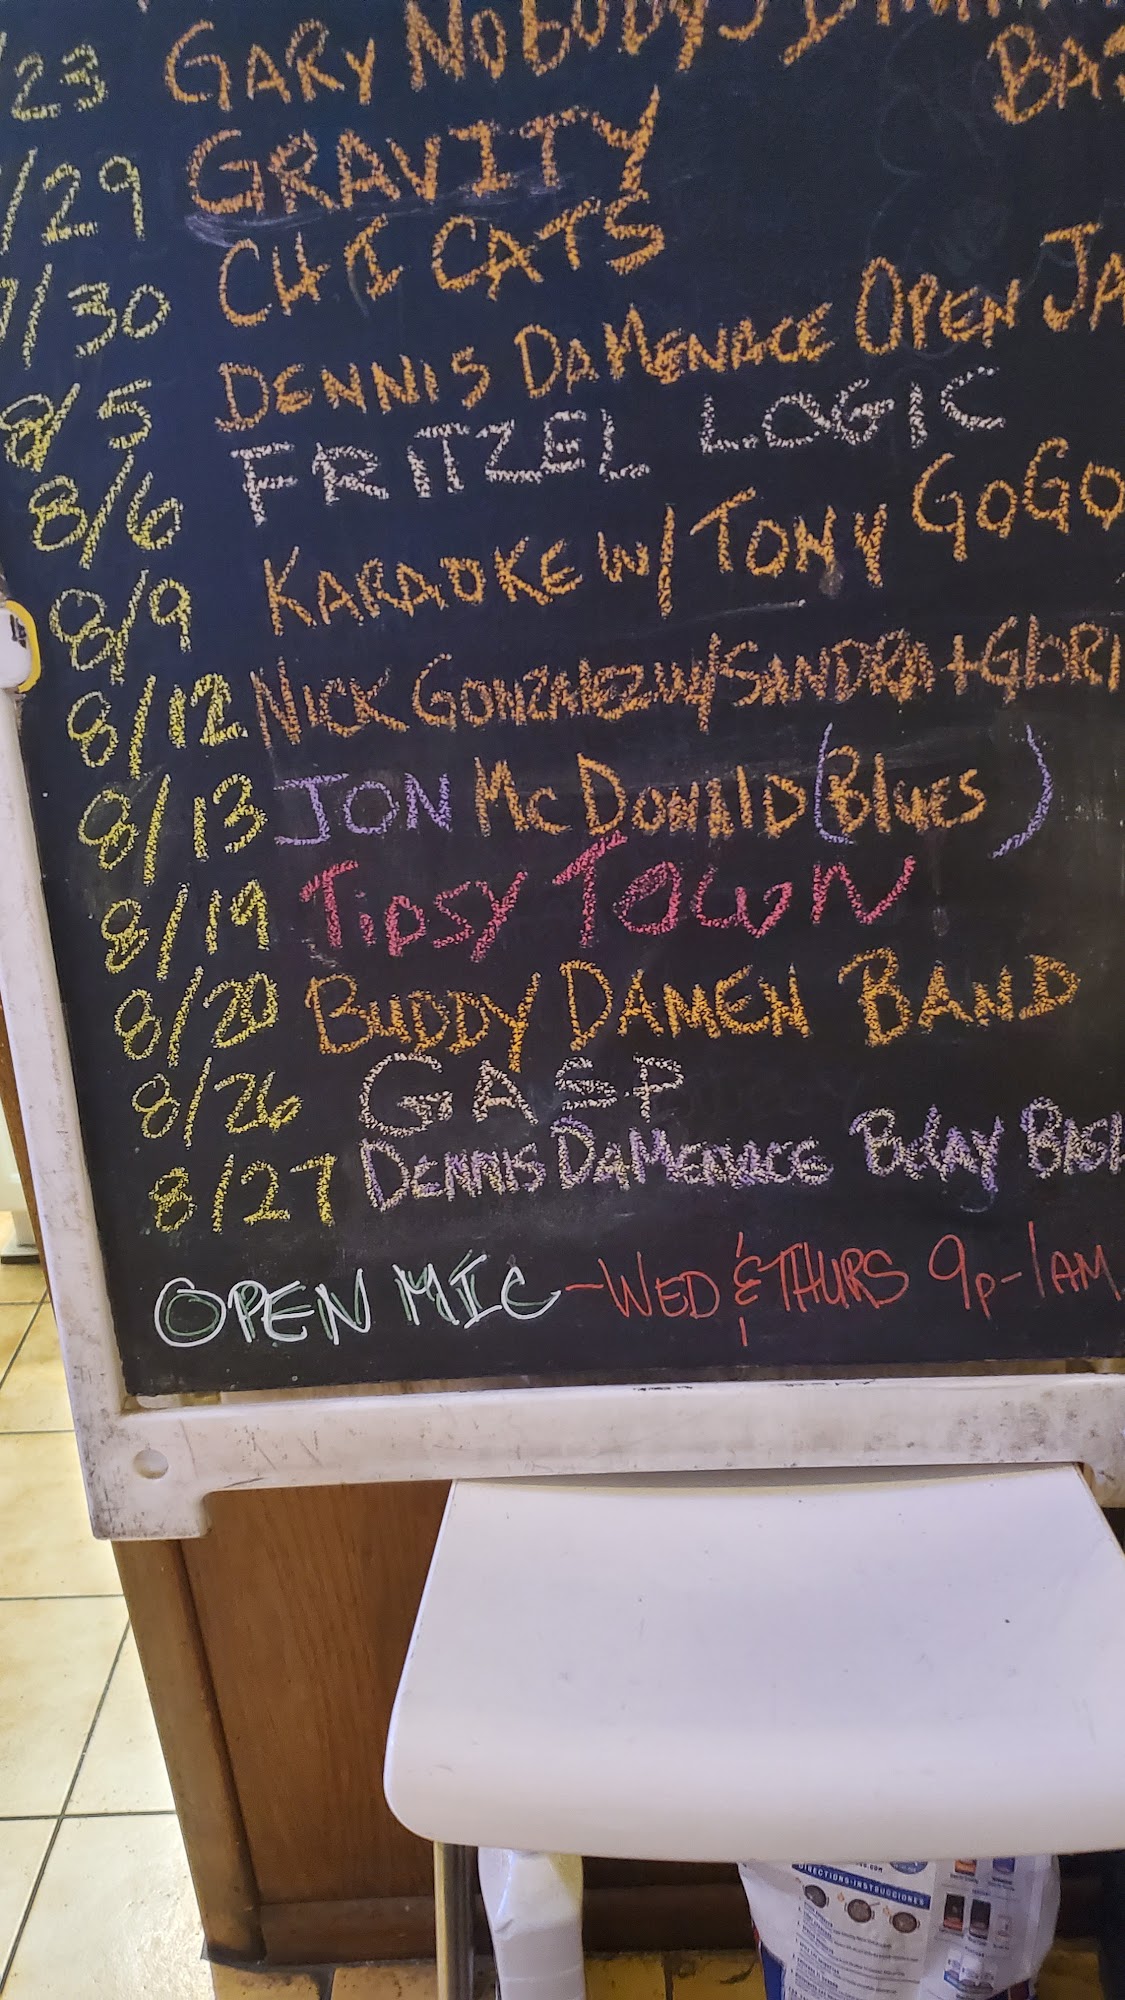 /23 GARY NOBODY'S
BA
/29 GRAVITY
7/30 CHI CATS
8/5 DENNIS DAMENACE OPEN JA
8/6 FRITZEL LOGIC
8/9 KARAOKE W/ TONY GOGO
8/12 NICK GONZALEZ W/ SANDRA + GlORI
8/13 JON McDONAlD (Blues)
8/19 TIPSY TOWN
8/20 BUDDY DAMEN BAND
8/26 GASP
8/27 DENNIS DAMENACE BDAY BASH
OPEN MIC - WED & THURS 9P-1AM
DIRECTIONS·INSTRUCCIONES